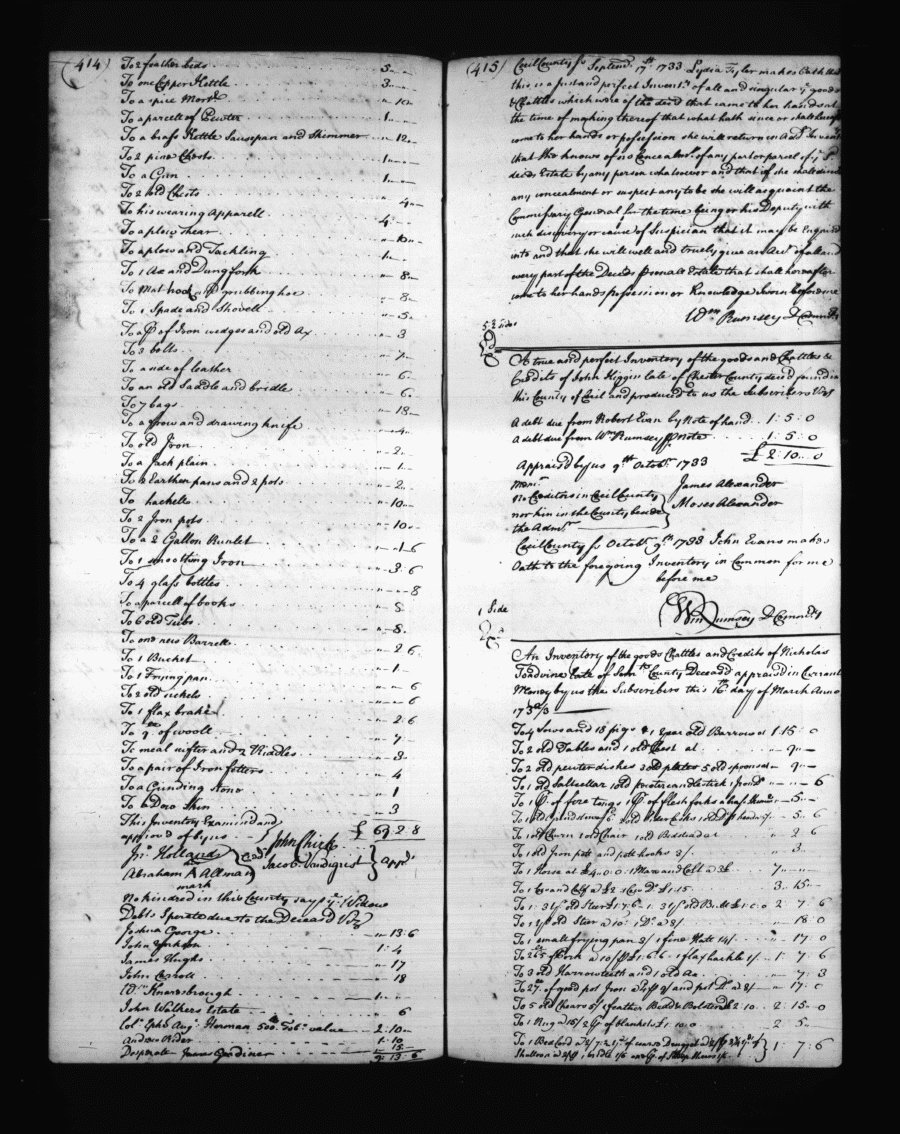 (414)
To 2 feather beds 5 - -
To one Copper Kettle 3 - -
To a spice Mortr " 10 -
To a parcell of Pewter 1 - -
To a brass Kettle Sausepan and Skimmer " 12 -
To 2 pine Chests 1 - -
To a Gun 1 - -
To 2 old Chests " 4 -
To his wearing Apparell 4 - -
To a plow shear " 10 -
To a plow and Tackling 1 - -
To 1 Ax and Dungfork " 8 -
To Mathook & grubbing hoe " 8 -
To 1 Spade and Shovell " 5 -
To a pr of Iron wedges and old Ax " 3
To 3 bolts " 7 -
To a side of leather " 6 -
To an old Saddle and bridle " 6 -
To 7 bags " 18 -
To a frow and drawing knife " 4 -
To old Iron " 2 -
To a Jack plain " 1 -
To Earthen pans and 2 pots " 2 -
To hackells " 10 -
To 2 Iron pots " 10 -
To a 2 Gallon Runlet " 1 6
To 1 smoothing Iron " 3 6
To 4 glass bottles " - 8
To a parcell of books " 5 -
To 6 old Tubs " 8 -
To one new Barrell " 2 6
To 1 Bucket " 1 -
To 1 Frying pan " - 6
To 2 old sickels " - 6
To 1 flax brake " 2 6
To 9 lb of wooll " 7
To meal sifter and 2 Riddles " 3 -
To a pair of Iron fetters " 4
To a Grinding Stone " 1
To a Doe Skin " 3
This Inventory Examind and
apprisd by us £ 69 2 8
Jno Holland John Chick
Abraham A Allman Credrs Jacob Vandigrist Apprs
his mark
No kindred in this County says ye Widow
Debts Sperate due to the Deceasd Viz
Joshua George " 13 : 6
John Jonkson 1 : 4
James Hughs " 17
John Corroll " 18
Wm Knarsbrough 1 - -
John Walkers Estate " 6
Colo Ephm Augt Herman 500 lb Tobo value 2 : 10 -
Andrew Rider 1 : 10
Desperate James Gardiner " 15 -
9 : 13 : 6
(415)
Cecil County ss Septemr 17th 1733 Lydia Tyler makes Oath that
this is a just and perfect Inventy of all and singular ye goods
Chattles which were of the decd that came to her hands at
the time of making thereof that what hath since or shall hereafter
come to her hands or possession she will return in Addl Inventy
that she knows of no Concealmt of any part or parcel of ye sd
decds Estate by any person whatsoever and that if she shall discover
any concealment or suspect any to be she will acquaint the
Commissary General for the time being or his Deputy with
such discovery or cause of Suspician that it may be Enquird
into and that she will well and truely give an Acct of all and
every part of the Decds Personall Estate that shall hereafter
come to her hands possession or Knowledge Sworn before me
Wm Rumsey D Commry
5 : 2 sides
A true and perfect Inventory of the goods and Chattles &
Credits of John Higgin late of Chester County decd found in
this County of Cecil and produced to us the Subscribers Viz
A debt due from Robert Evan by Note of hand 1 : 5 : 0
A debt due from Wm Rumsey pr note 1 : 5 : 0
£ 2 : 10 : 0
Appraisd by us 9th Octobr 1733
Memm
No Creditors in Cecil County
nor kin in the County beside
the Admr
James Alexander
Moses Alexander
Cecil County ss Octobr 9th 1733 John Evans makes
Oath to the foregoing Inventory in Common form
before me
Wm Rumsey D Commry
1 Side
An Inventory of the goods Chattles and Credits of Nicholas
Toadvine late of Somrst County Deceasd appraisd in Currant
Money by us the Subscribers this 16th day of March Anno
1732/3
To 4 Sows and 18 pigs & 1 2 year old Barrow at 1 : 15 : 0
To 2 old Tables and 1 old Chest at " 9 -
To 2 old pewter dishes 3 old plates 5 old spoons at " 9 -
To 1 old Saltcellar 1 old Candlestick 1 " - 6
To 1 pr of fire tongs 1 pr of flesh forks " 5 -
" 5 : 6
To 1 old Churn 1 old Chair 1 old Bedstead at " 2 : 6
To 1 old Iron pott and pott hooks 3/ " 3 -
To 1 Horse at £ 4 : 0 : 0 : 1 Mare and Colt a 3£ 7 " -
To 1 Cow and Calf a £ 2 1 Cow Do £ 1 : 15 3 : 15 -
To 1 : 3 yr old Steer £ 1 : 7 : 6 - 1 : 3 yr old Bull £ 1 : 0 : 0 2 : 7 : 6
To 1 2 yr old Steer a 10 : 1 Do a 8/ " 18 : 0
To 1 small frying pan 3/ 1 fine Hatt 14/ " 17 : 0
To 265 lb of Pork a 10/ £ 1 : 6 : 6 - 1 flax hackle 1/ 1 : 7 : 6
To 3 old Harrow teeth and 1 old Ax " 7 : 3
To 27 lb of good pot Iron and pot Do a " 17 : 0
To 5 old Chears 5/ 1 feather Bead & Bolster £ 2 10 2 : 15 : 0
To 1 Rug a 15/ 2 pr of blankets £ 1 : 10 : 0 2 : 5 -
To 1 Bed Cord 1 : 7 : 6